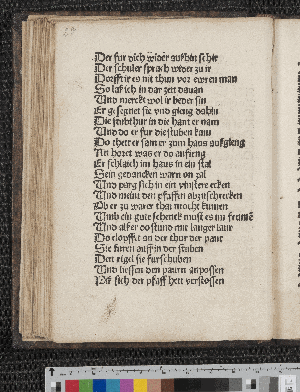 Der fur dich wider außhin schir
Der schuler sprach weder zu ir
Dorfft ir es nit thun vor ewren man
So laß ich in dar zen dauan
Und merckt wol ir beder sin
Er gesegnet sie und gieng dohin
Die stubthur in die hant er nam
Und do er fur die stuben kam
Do thett er sam er zum haus außgieng
Nu horet was er do anfieng
Er schlaich im haus in ein stal
Sein gedancken warn on zal
Und parg sich in ein vinstere ecken
Und meint den pfaffen abzuschrecken
Ob er zu wares thet mocht kumen
Umb ein gute schenck must es im frumē
Und als er do stund mit langer laur
Do clopfft an der thur der paur
Sie furen auff in der stuben
Den rigel sie furschuben
Und liessen den paurn anpossen
Piß sich der pfaff hett verstossen